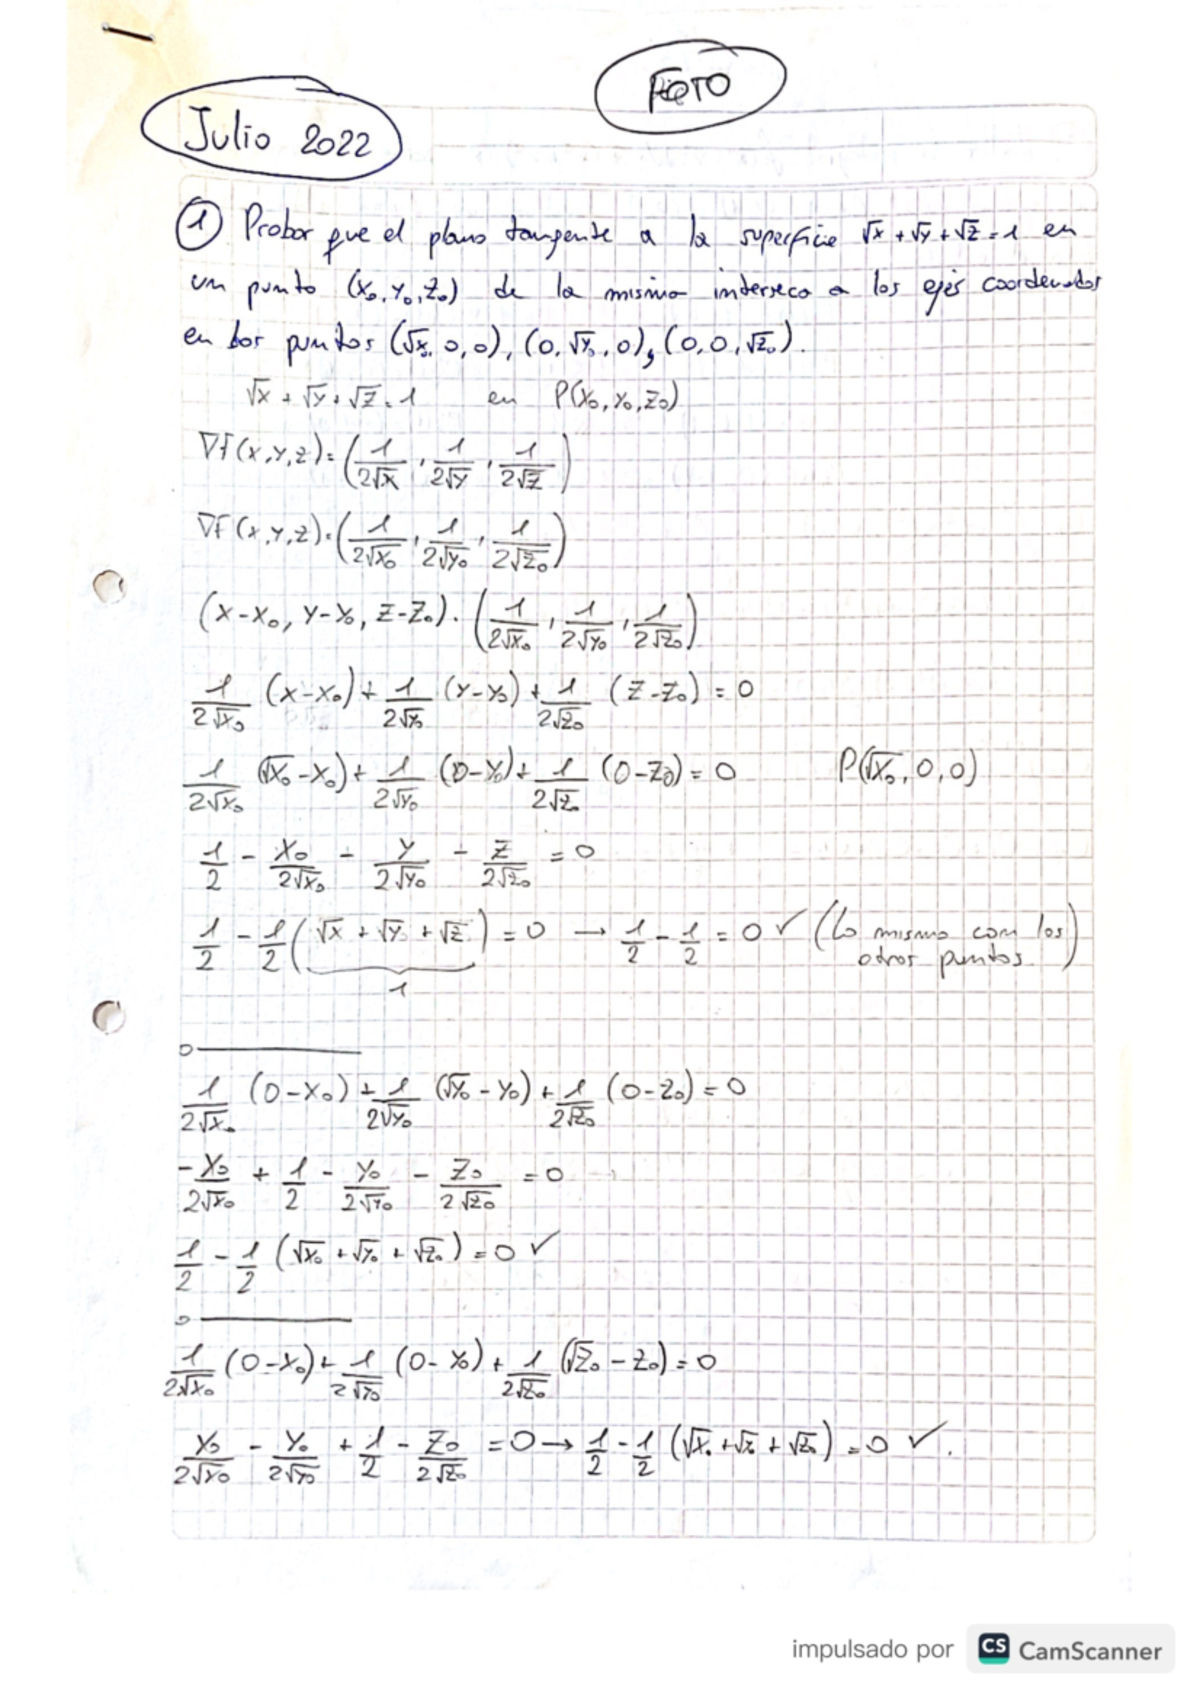 Julio 2022
① Probar que el plano tangente a la superficie √x + √y + √z = 1 en
un punto (x₀, y₀, z₀) de la misma interseca a los ejes coordenados
en los puntos (√x₀, 0, 0), (0, √y₀, 0), (0, 0, √z₀).
√x + √y + √z = 1 en P(x₀, y₀, z₀)
∇f(x, y, z) = (1/2√x, 1/2√y, 1/2√z)
∇f(x, y, z) = (1/2√x₀, 1/2√y₀, 1/2√z₀)
(x-x₀, y-y₀, z-z₀) · (1/2√x₀, 1/2√y₀, 1/2√z₀)
1/2√x₀ (x-x₀) + 1/2√y₀ (y-y₀) + 1/2√z₀ (z-z₀) = 0
1/2√x₀ (√x₀-x₀) + 1/2√y₀ (0-y₀) + 1/2√z₀ (0-z₀) = 0 P(√x₀, 0, 0)
1/2 - x₀/2√x₀ - y/2√y₀ - z/2√z₀ = 0
1/2 - 1/2 (√x + √y + √z) = 0 → 1/2 - 1/2 = 0 ✓ (Lo mismo con los
1 otros puntos)
1/2√x₀ (0-x₀) + 1/2√y₀ (√y₀ - y₀) + 1/2√z₀ (0-z₀) = 0
-x₀/2√x₀ + 1/2 - y₀/2√y₀ - z₀/2√z₀ = 0
1/2 - 1/2 (√x₀ + √y₀ + √z₀) = 0 ✓
1/2√x₀ (0-x₀) + 1/2√y₀ (0-y₀) + 1/2√z₀ (√z₀ - z₀) = 0
x₀/2√x₀ - y₀/2√y₀ + 1/2 - z₀/2√z₀ = 0 → 1/2 - 1/2 (√x₀ + √z₀ + √z₀) = 0 ✓.
impulsado por CS CamScanner